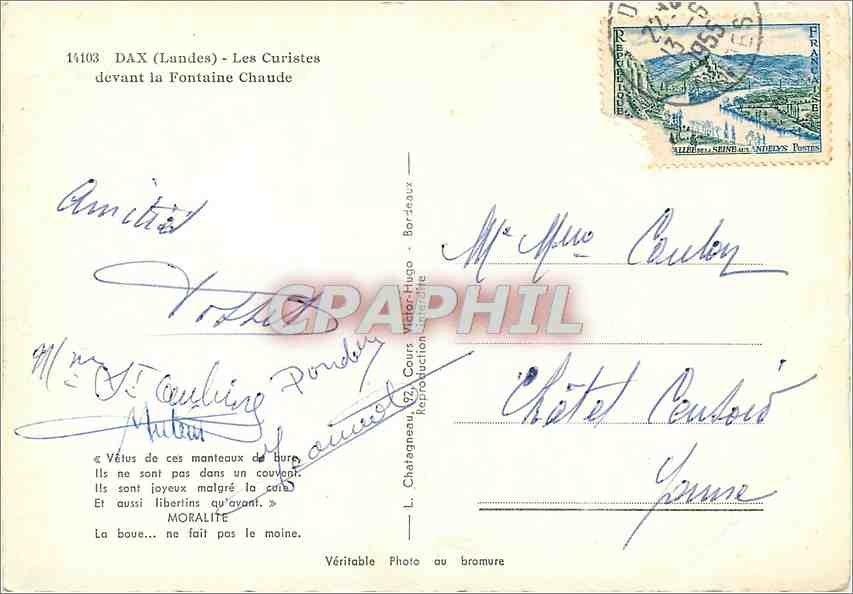 14103 DAX (Landes) - Les Curistes
devant la Fontaine Chaude
22
13 - 5
1955
REPUBLIQUE
FRANCAISE
ALLEE DE LA SEINE AUX ANDELYS POSTES
Amitiés
Mme
« Vêtus de ces manteaux de bure,
Ils ne sont pas dans un couvent,
Ils sont joyeux malgré la cure
Et aussi libertins qu'avant. »
MORALITE
La boue... ne fait pas le moine.
L. Chatagneau, 92, Cours Victor-Hugo - Bordeaux
Reproduction interdite
CPAPHIL
Mr Mme Coulon
Châtel Censoir
Yonne
Véritable Photo au bromure